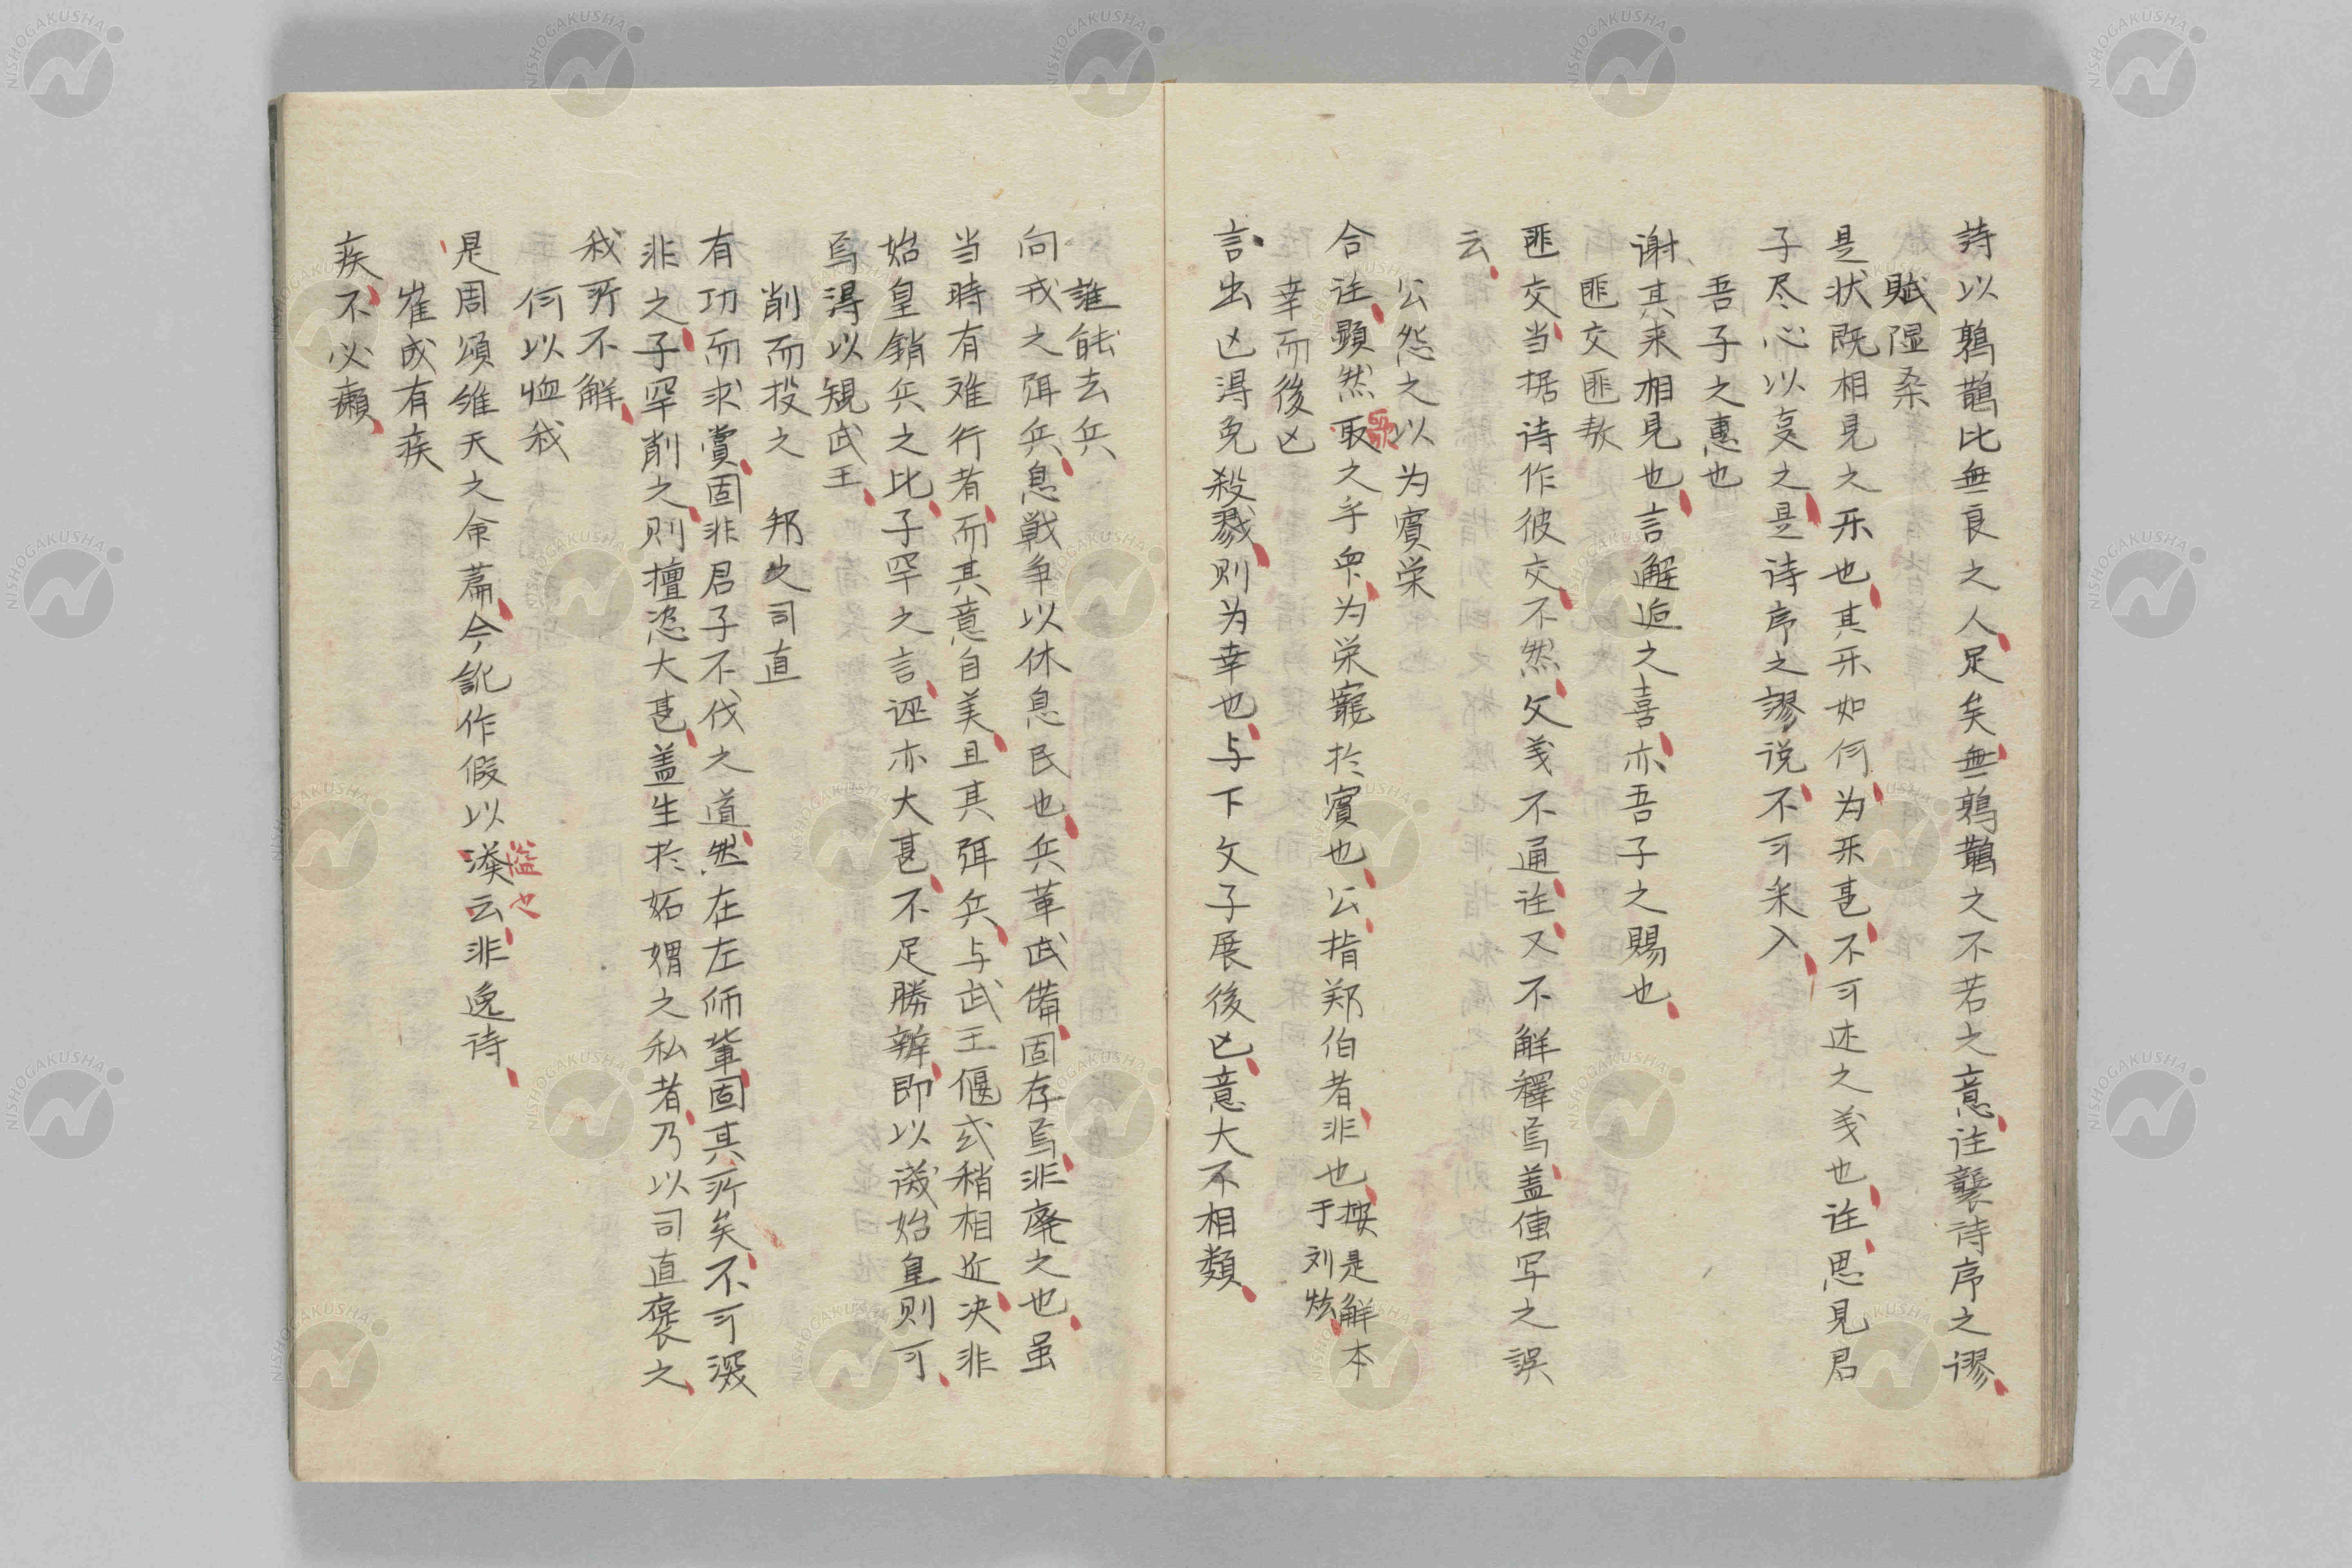 詩以鶉鵲比無良之人足矣無鶉鵲之不若之意注襲诗序之謬
賦隰桑
是状既相見之乐也其乐如何为乐甚不可述之義也注思見君
子尽心以事之是诗序之謬说不可采入
吾子之惠也
谢其来相見也言解逅之喜亦吾子之賜也
匪交匪敖
匪交当据诗作彼交不然文義不通注又不解釋焉盖傳写之誤
云
公怨之以为賓栄
合注顕然取之乎衆为栄寵於賓也公指郑伯者非也按是解本于刘炫
歌
幸而後亡
言出亡得免殺戮则为幸也与下文子展後亡意大不相類
誰能去兵
向戌之弭兵息戦争以休息民也兵革武備固存焉非廃之也虽
当時有难行者而其意自美且其弭兵与武王偃武稍相近决非
始皇銷兵之比子罕之言诬亦大甚不足勝辨即以譏始皇则可
焉得以規武王
削而投之 邦之司直
有功而求賞固非君子不伐之道然在左师輩固其所矣不可深
非之子罕削之则擅恣大甚盖生於妬媢之私者乃以司直褒之
我所不解
何以恤我
是周頌维天之命篇今訛作假以溢云非逸诗
溢也
崔成有疾
疾不必癩
NISHOGAKUSHA